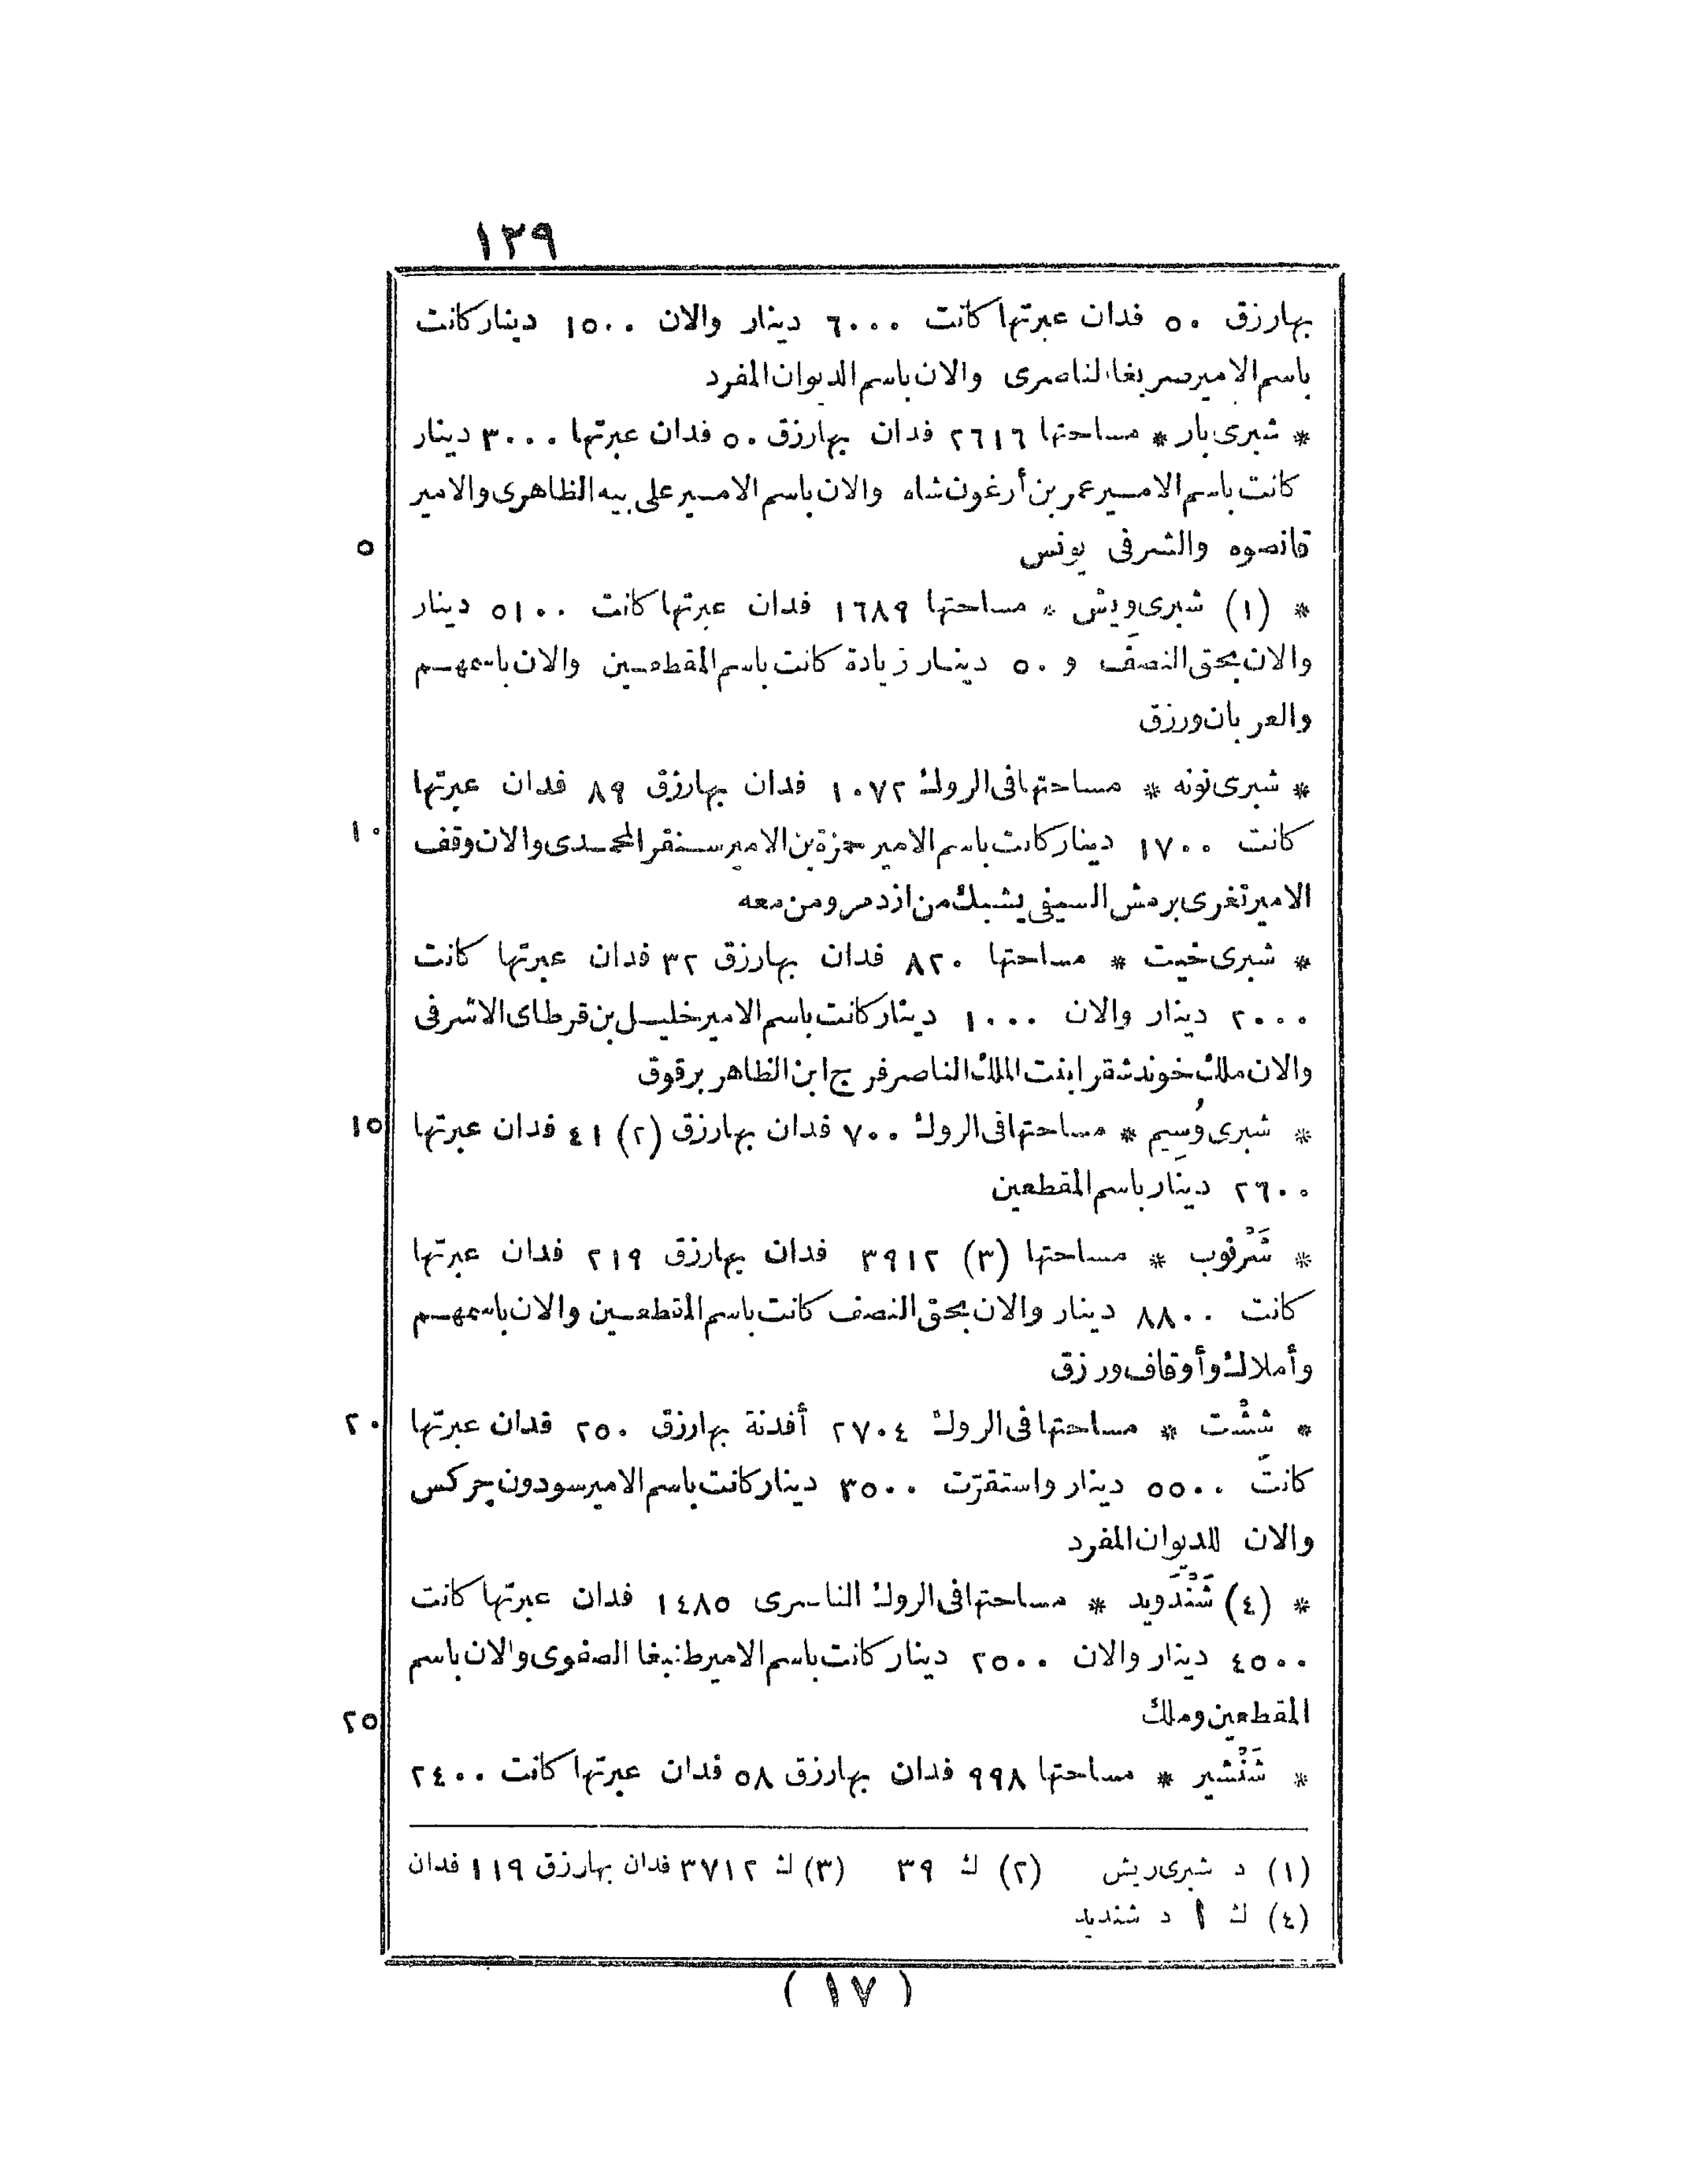 ١٢٩
بها رزق ٥٠ فدان عبرتها كانت ٦٠٠٠ دينار والان ١٥٠٠ دينار كانت
باسم الامير صربغا الناصرى والان باسم الديوان المفرد
* شبرى بار * مساحتها ٢٦١٦ فدان بها رزق ٥٠ فدان عبرتها ٣٠٠٠ دينار
كانت باسم الامير عمر بن أرغون شاه والان باسم الامير على بيه الظاهرى والامير
قانصوه والشرفى يونس
٥
* (١) شبرى ويش * مساحتها ١٦٨٩ فدان عبرتها كانت ٥١٠٠ دينار
والان بحق النصف و ٥٠ دينار زيادة كانت باسم المقطعين والان باسمهم
والعربان ورزق
* شبرى نونه * مساحتها فى الروك ١٠٧٢ فدان بها رزق ٨٩ فدان عبرتها
كانت ١٧٠٠ دينار كانت باسم الامير حمزة بن الامير سنقر المحمدى والان وقف
١٠
الامير تغرى برمش السيفى يشبك من ازدمر ومن معه
* شبرى خيت * مساحتها ٨٢٠ فدان بها رزق ٣٢ فدان عبرتها كانت
٢٠٠٠ دينار والان ١٠٠٠ دينار كانت باسم الامير خليل بن قرطاى الاشرفى
والان ملك خوند شقرا بنت الملك الناصر فرج ابن الظاهر برقوق
* شبرى وُسِيم * مساحتها فى الروك ٧٠٠ فدان بها رزق (٢) ٤١ فدان عبرتها
١٥
٢٦٠٠ دينار باسم المقطعين
* شَرْنوب * مساحتها (٣) ٣٩١٢ فدان بها رزق ٢١٩ فدان عبرتها
كانت ٨٨٠٠ دينار والان بحق النصف كانت باسم المقطعين والان باسمهم
وأملاك وأوقاف ورزق
* شِشْت * مساحتها فى الروك ٢٧٠٤ أفدنة بها رزق ٢٥٠ فدان عبرتها
٢٠
كانت ٥٥٠٠ دينار واستقرّت ٣٥٠٠ دينار كانت باسم الامير سودون چركس
والان للديوان المفرد
* (٤) شَنْدَويد * مساحتها فى الروك الناصرى ١٤٨٥ فدان عبرتها كانت
٤٥٠٠ دينار والان ٢٥٠٠ دينار كانت باسم الامير طنبغا الصفوى والان باسم
المقطعين وملك
٢٥
* شَنْشير * مساحتها ٩٩٨ فدان بها رزق ٥٨ فدان عبرتها كانت ٢٤٠٠
(١) د شبرى ريش (٢) ك ٣٩ (٣) ك ٣٧١٢ فدان بها رزق ١١٩ فدان
(٤) ك د شنديد
(١٧)